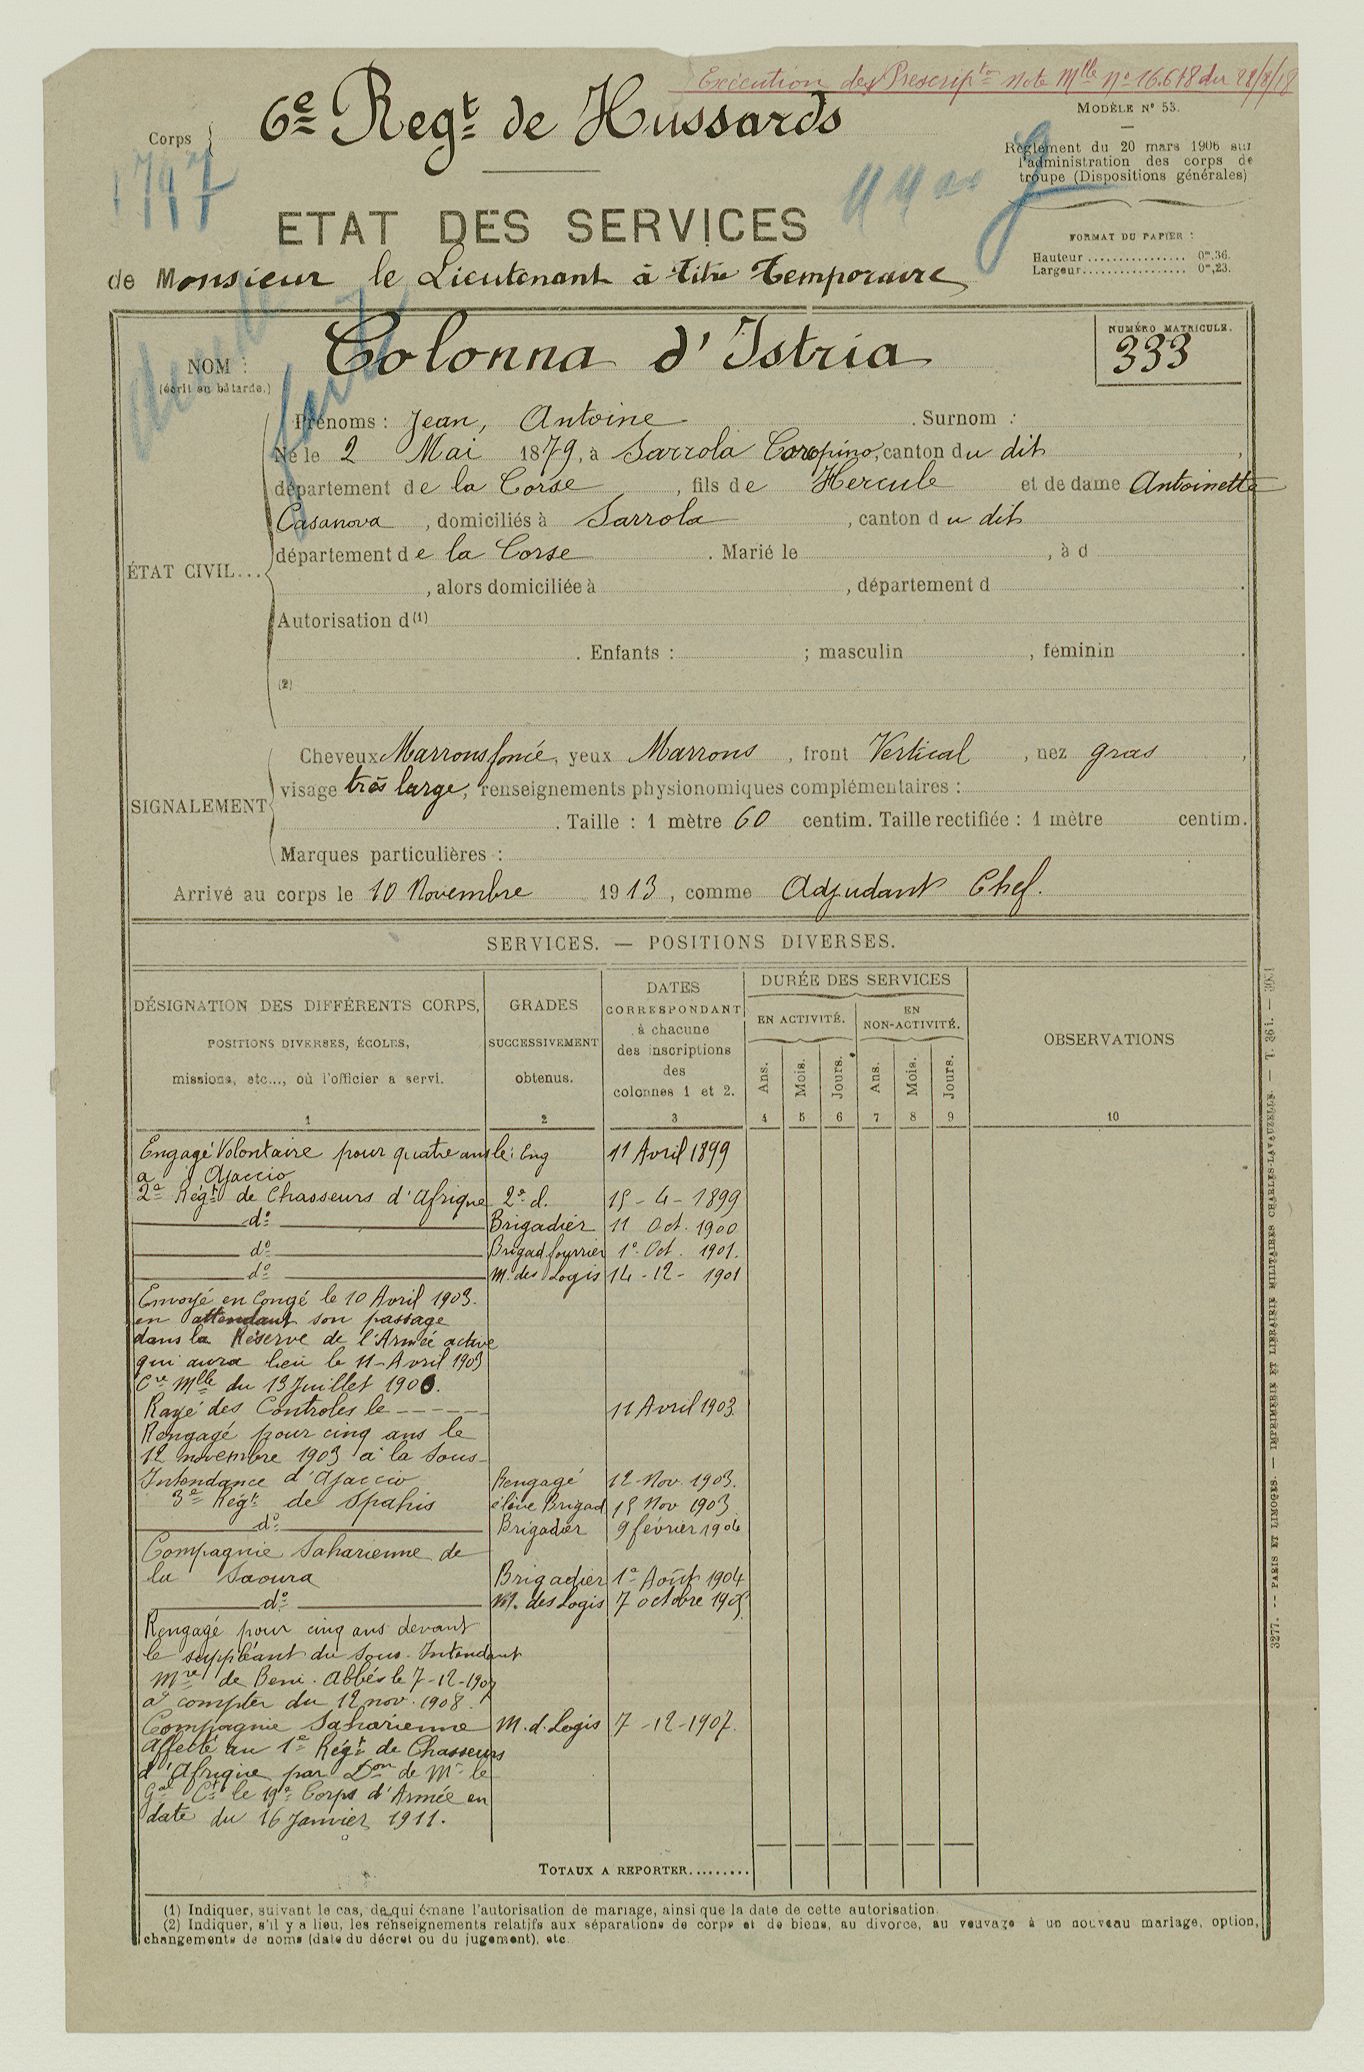 Exécution des Prescript^on note M^lle N° 16.618 du 28/8/18
Corps
6e Regt de Hussards
MODÈLE N° 53.
Règlement du 20 mars 1906 sur
l'administration des corps de
troupe (Dispositions générales)
ETAT DES SERVICES
FORMAT DU PAPIER :
Hauteur ............... 0m,36.
Largeur ................ 0m,23.
de Monsieur le Lieutenant à titre temporaire
NOM :
(écrit en bâtarde.)
Colonna d'Istria
NUMÉRO MATRICULE.
333
Prénoms : Jean, Antoine . Surnom :
Né le 2 Mai 1879, à Sarrola Carcopino, canton du dit
département de la Corse , fils de Hercule et de dame Antoinette
Casanova , domiciliés à Sarrola , canton du dit
département de la Corse . Marié le , à d
ÉTAT CIVIL...
, alors domiciliée à , département d
Autorisation d (1)
. Enfants : ; masculin , féminin .
(2)
Cheveux Marrons foncé, yeux Marrons , front Vertical , nez gras
SIGNALEMENT
visage très large, renseignements physionomiques complémentaires :
. Taille : 1 mètre 60 centim. Taille rectifiée : 1 mètre centim.
Marques particulières :
Arrivé au corps le 10 Novembre 1913 , comme Adjudant Chef.
SERVICES. — POSITIONS DIVERSES.
DÉSIGNATION DES DIFFÉRENTS CORPS,
POSITIONS DIVERSES, ÉCOLES,
missions, etc..., où l'officier a servi.
GRADES
SUCCESSIVEMENT
obtenus.
DATES
CORRESPONDANT
à chacune
des inscriptions
des
colonnes 1 et 2.
DURÉE DES SERVICES
EN ACTIVITÉ.
EN
NON-ACTIVITÉ.
Ans. Mois. Jours. Ans. Mois. Jours.
OBSERVATIONS
1 2 3 4 5 6 7 8 9 10
Engagé Volontaire pour quatre ans le : Eng 11 Avril 1899
a Ajaccio
2e Régt de Chasseurs d'Afrique 2e cl. 15 - 4 - 1899
do Brigadier 11 Oct. 1900
do Brigad. fourrier 1er Oct. 1901.
do M. des Logis 14 - 12 - 1901
Envoyé en Congé le 10 Avril 1903.
en attendant son passage
dans la Réserve de l'Armée active
qui aura lieu le 11 - Avril 1903
Cre Mlle du 13 Juillet 1900.
Rayé des Controles le - - - - - 11 Avril 1903
Rengagé pour cinq ans le
12 novembre 1903 à la Sous-
Intendance d'Ajaccio Rengagé 12 - Nov. 1903.
3e Régt de Spahis élève Brigad. 15 Nov 1903
do Brigadier 9 février 1904
Compagnie Saharienne de
la Saoura Brigadier 1er Août 1904
do M. des Logis 7 octobre 1905
Rengagé pour cinq ans devant
le suppléant du Sous-Intendant
Mre de Beni-Abbés le 7-12-1907
à compter du 12 nov. 1908.
Compagnie Saharienne M. d. Logis 7 - 12 - 1907.
Affecté au 1e Régt de Chasseurs
d'Afrique par Don de Mr le
Gal Ct le 19e Corps d'Armée en
date du 16 Janvier 1911.
TOTAUX A REPORTER.........
(1) Indiquer, suivant le cas, de qui émane l'autorisation de mariage, ainsi que la date de cette autorisation.
(2) Indiquer, s'il y a lieu, les renseignements relatifs aux séparations de corps et de biens, au divorce, au veuvage à un nouveau mariage, option,
changements de noms (date du décret ou du jugement), etc.
3277. -- PARIS ET LIMOGES. — IMPRIMERIE ET LIBRAIRIE MILITAIRES CHARLES-LAVAUZELLE.